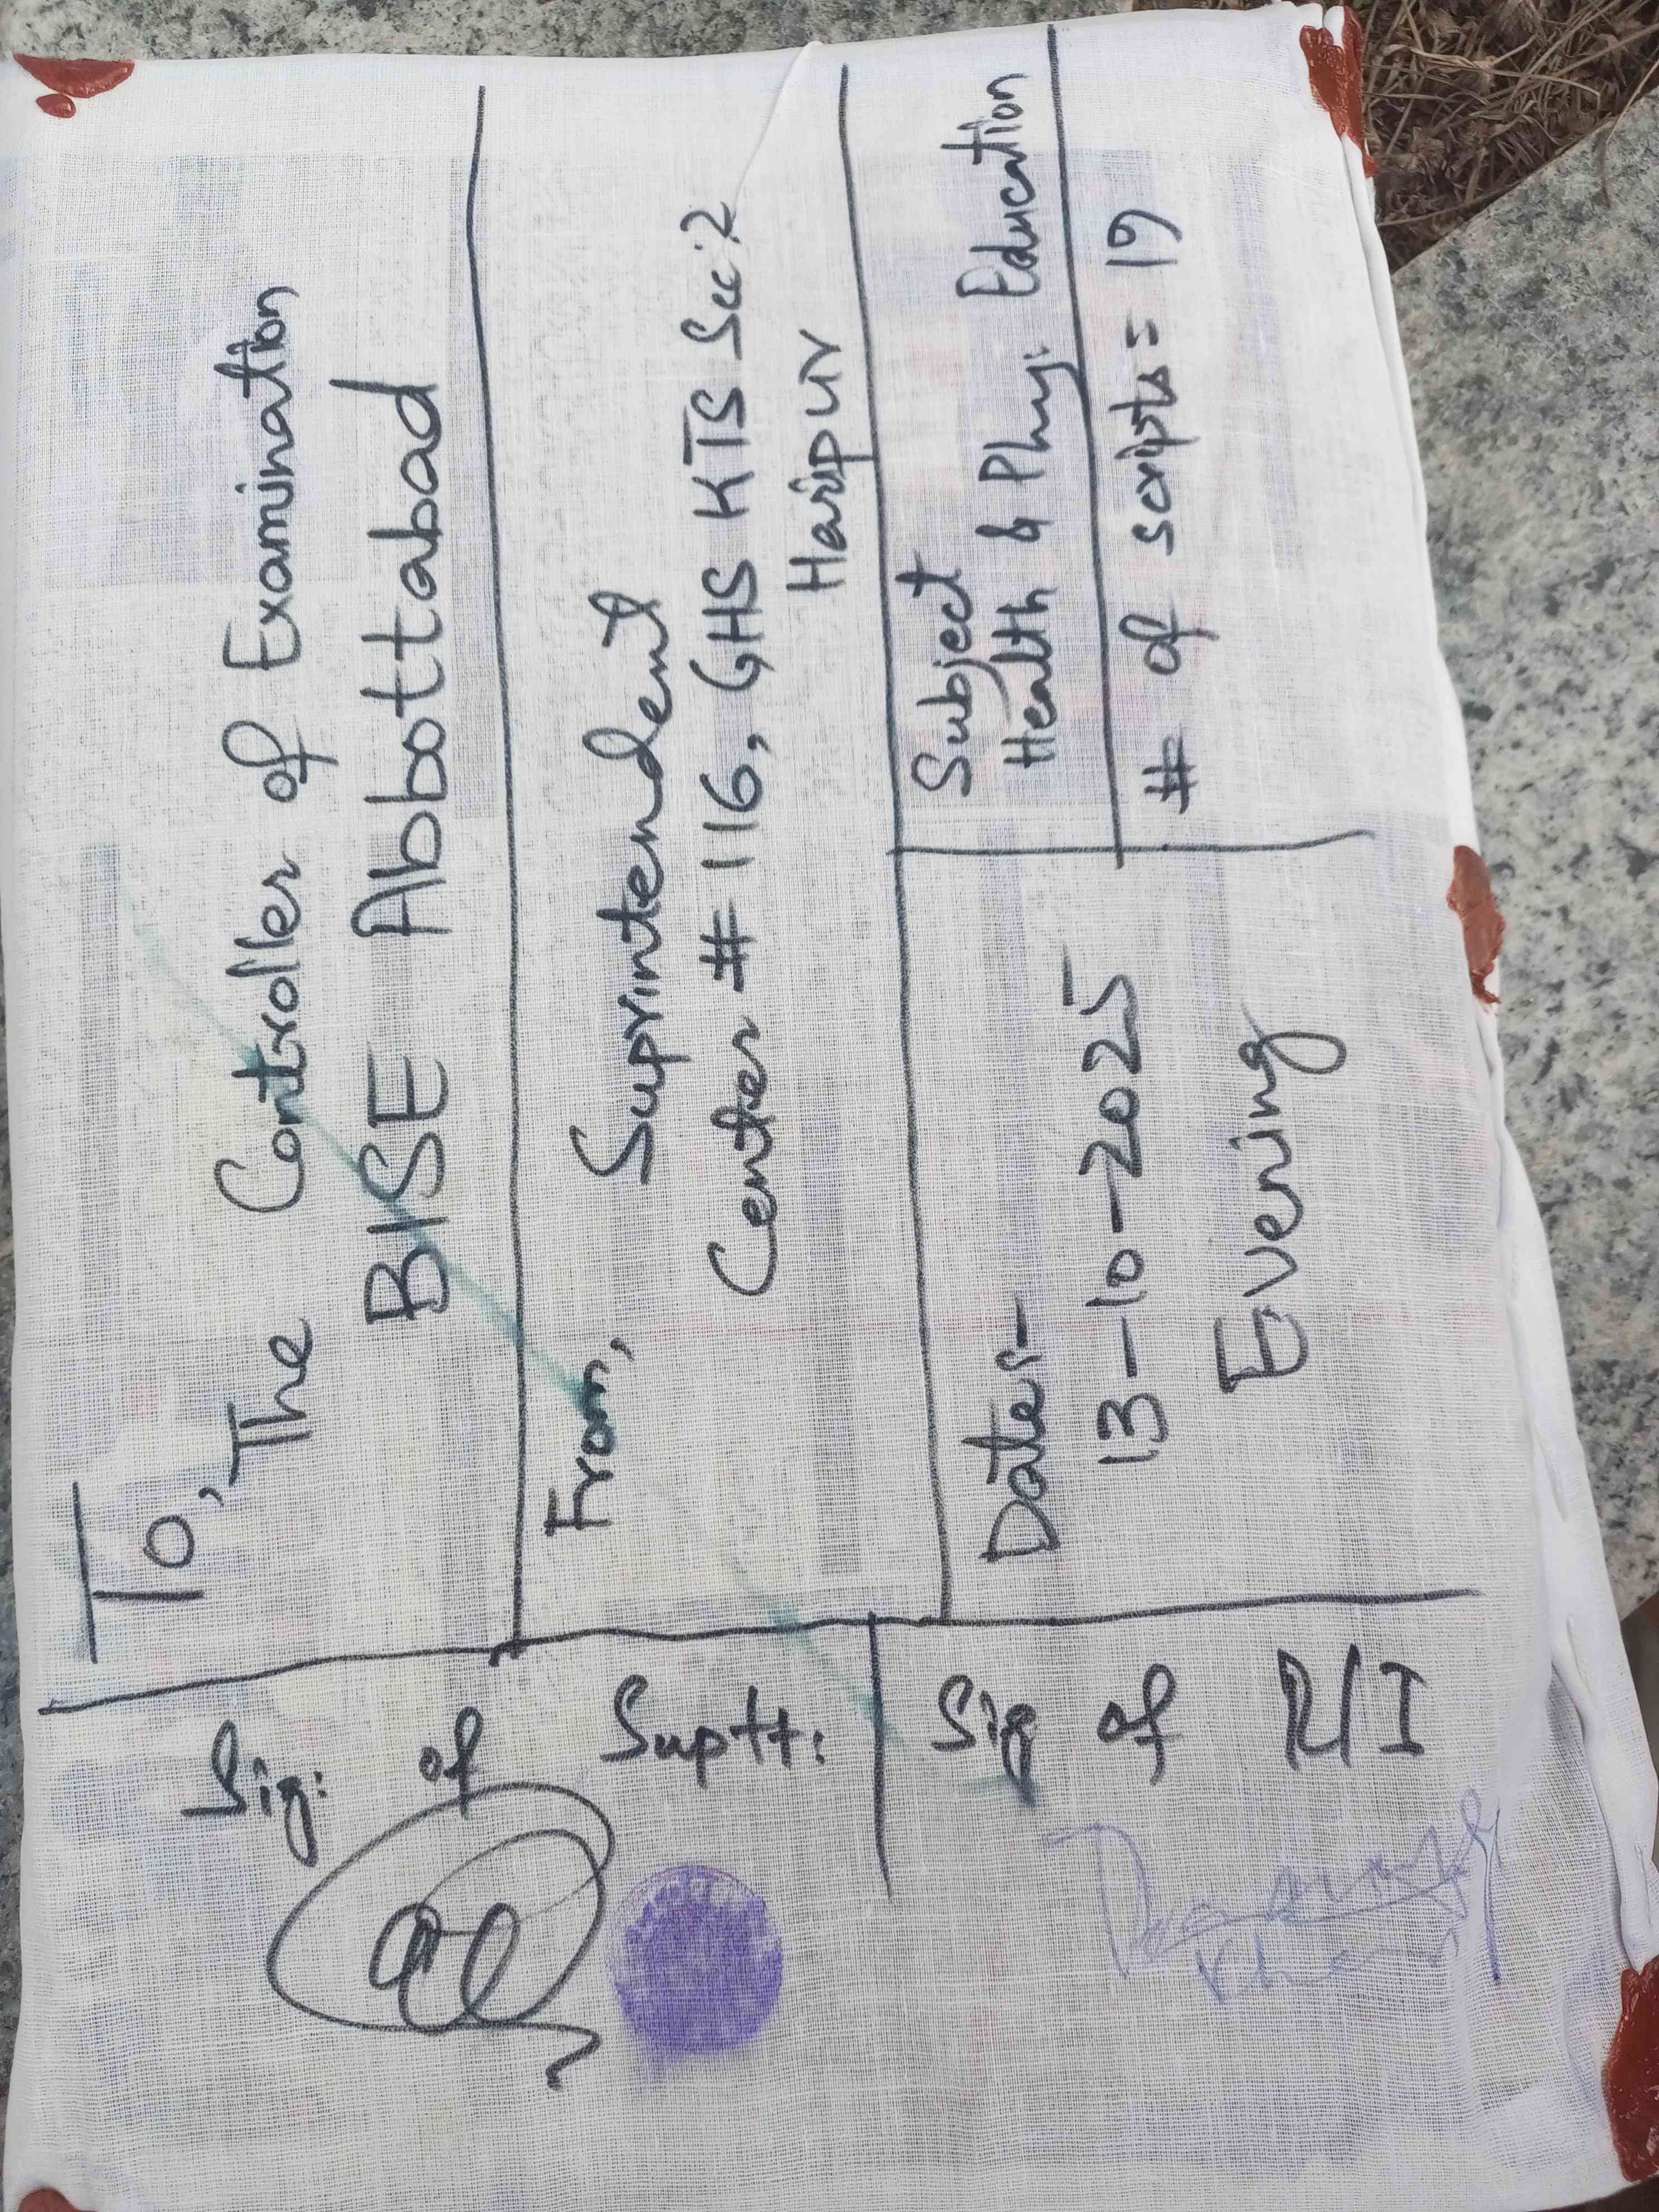 To, The Controller of Examination
BISE Abbottabad
From,
Suprintendent
Center # 116, GHS KTS Sec: 2
Haripur
Dates-
13-10-2025
Evening
Subject
Health & Phy: Education
# of scripts = 19
Sig: of Suptt:
Sig of R/I
Khan